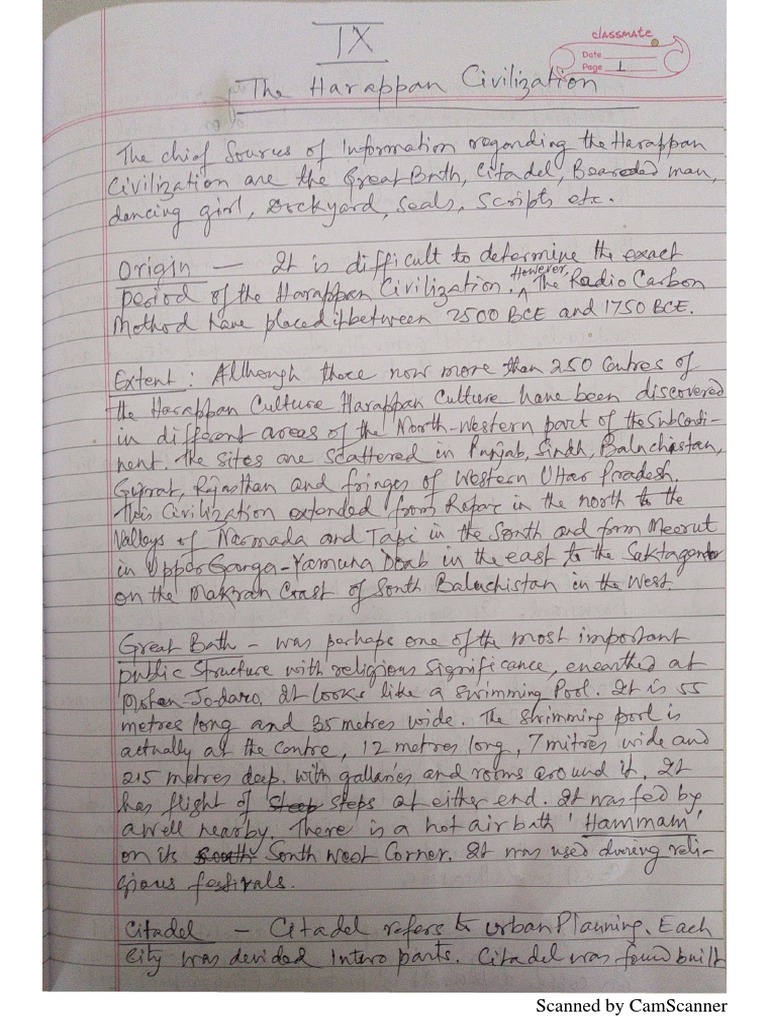 IX
classmate
Date
Page 1
The Harappan Civilization
The chief Sources of Information regarding the Harappan
Civilization are the Great Bath, Citadel, Bearded man,
dancing girl, Dockyard, Seals, Scripts etc.
Origin — It is difficult to determine the exact
period of the Harappan Civilization. However, The Radio Carbon
Method have placed it between 2500 BCE and 1750 BCE.
Extent : Although there now more than 250 Centres of
the Harappan Culture Harappan Culture have been discovered
in different areas of the North-Western part of the Sub Conti-
nent. The sites are scattered in Punjab, Sindh, Baluchistan,
Gujrat, Rajasthan and fringes of Western Uttar Pradesh.
This Civilization extended from Ropar in the north to the
Valleys of Narmada and Tapi in the South and form Meerut
in Upper Ganga-Yamuna Doab in the east to the
on the Makran Coast of South Baluchistan in the West
Great Bath – was perhaps one of the most important
public structure with religious significance, enearthed at
Mohen-Jo-daro. It looks like a swimming Pool. It is 55
metres long and 35 metres wide. The swimming pool is
actually at the centre, 12 metres long, 7 mitres wide and
215 metres deep. with gallaries and rooms around it. It
has flight of steps at either end. It was fed by
a well nearby. There is a hot air bath 'Hammam'
on its South West Corner. It was used during reli-
gious festivals.
Citadel – Citadel refers to urban Planning. Each
City was devided Intwo parts. Citadel was found built
Scanned by CamScanner